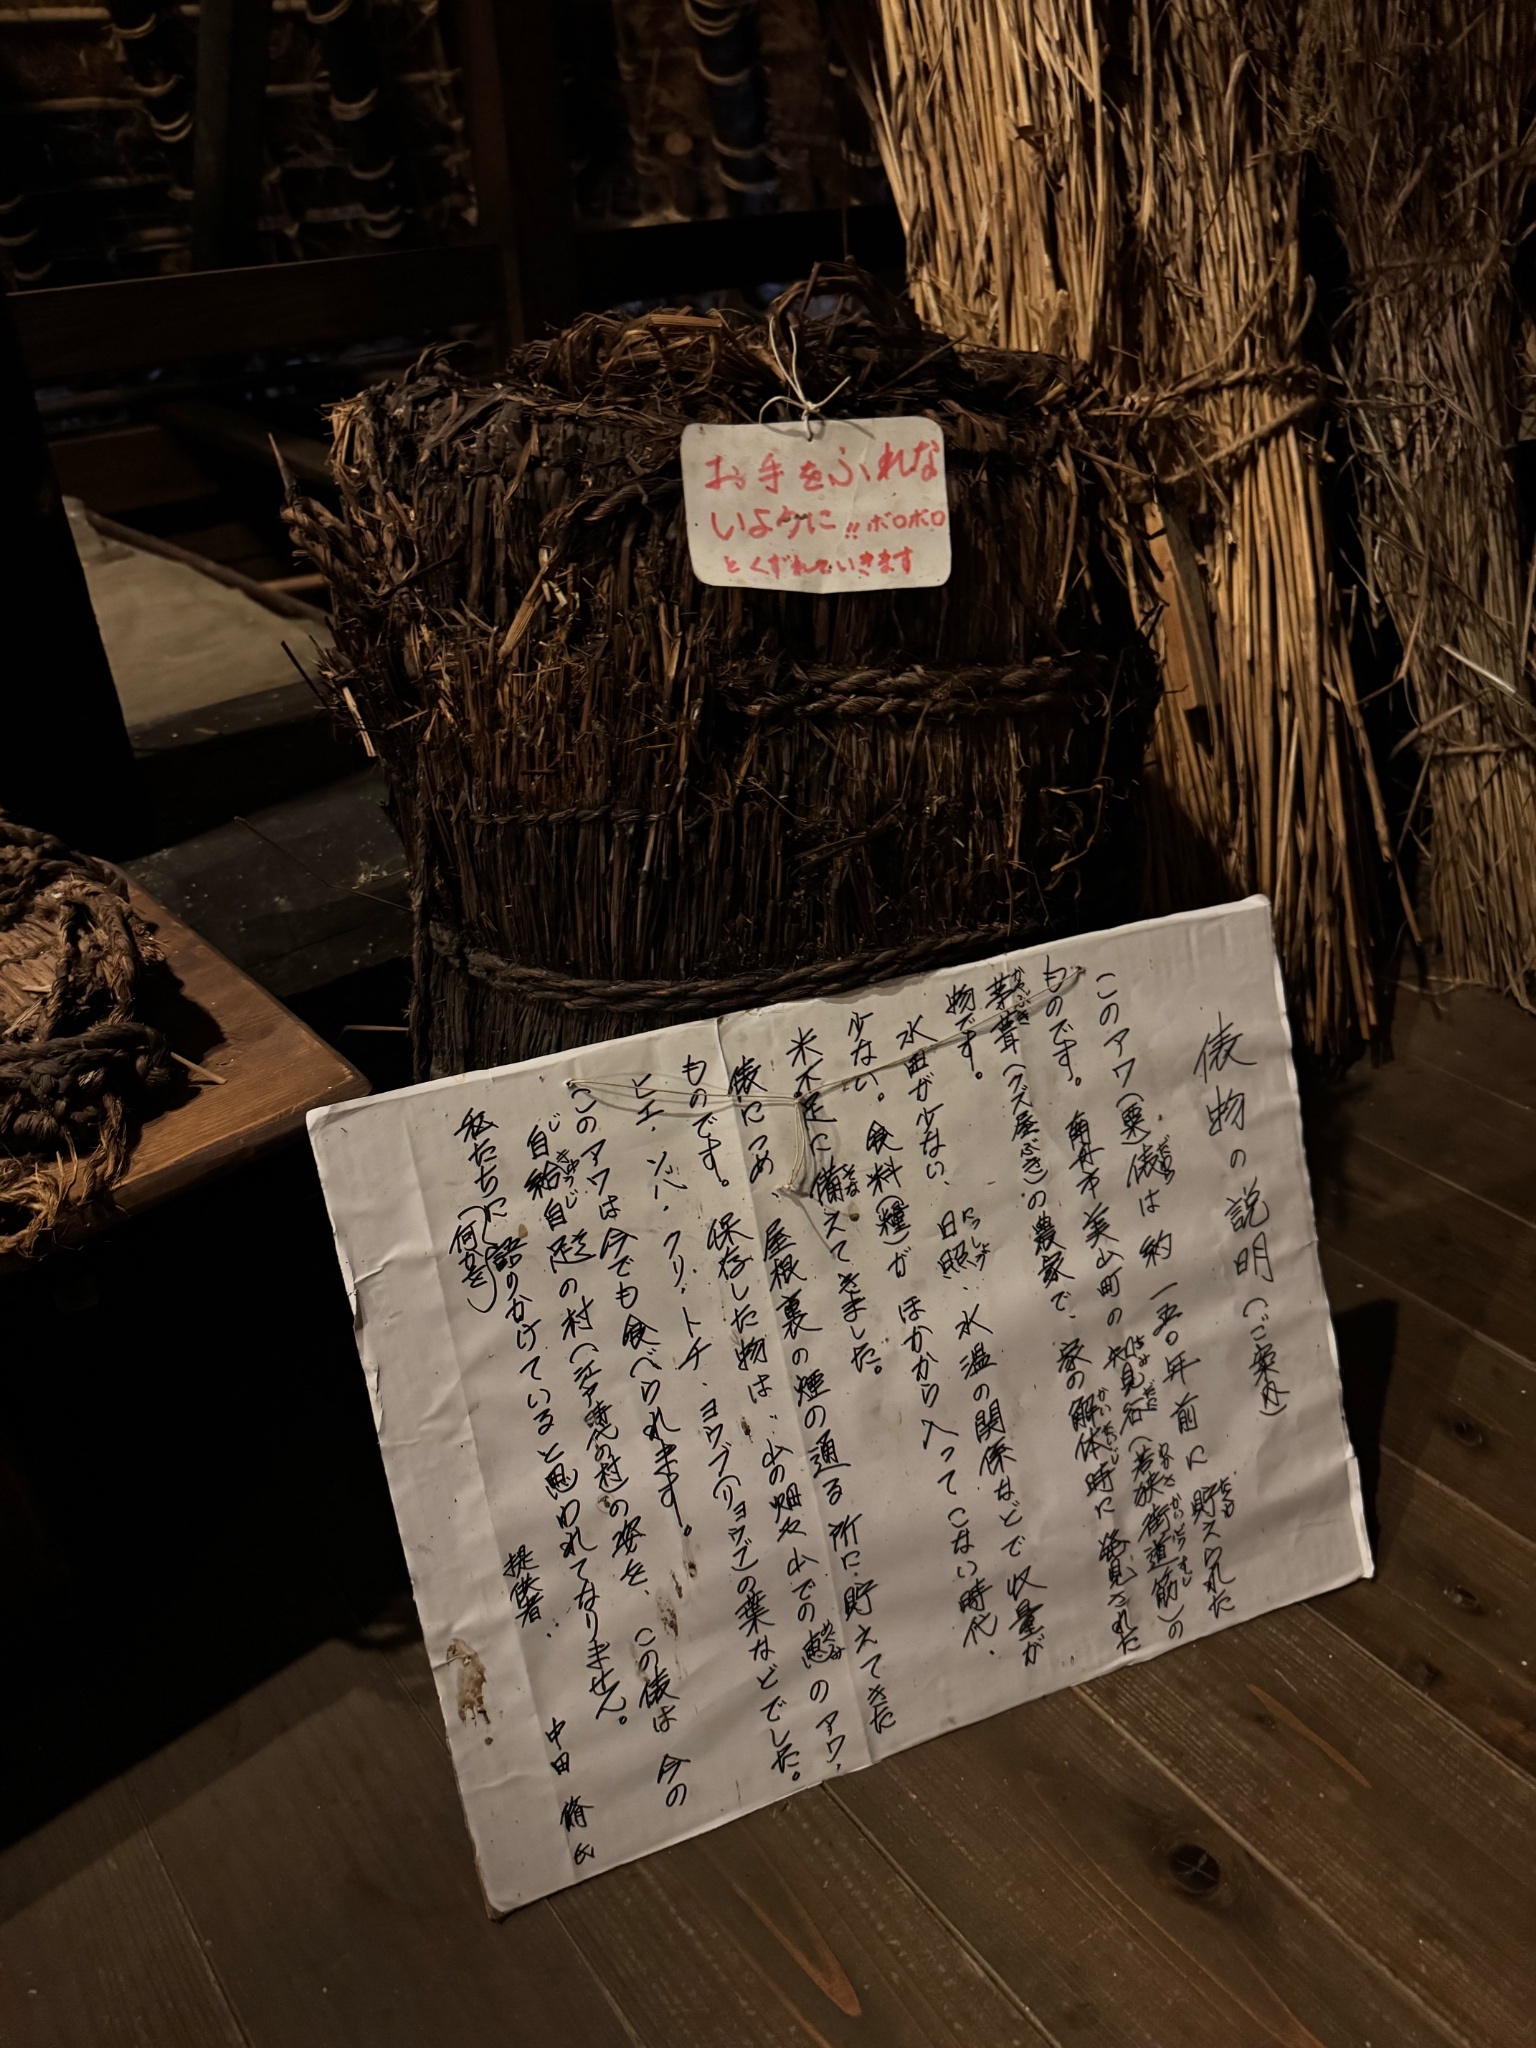 お手をふれな
いように!!ボロボロ
とくずれていきます
俵物の説明(ご案内)
このアワ(粟)俵は約一五〇年前に貯えられた
ものです。南丹市美山町の知見谷(若狭街道筋)の
茅葺(クズ屋ぶき)の農家で、家の解体時に発見された
物です。
水田が少ない、日照、水温の関係などで収量が
少ない。食料(糧)がほかから入ってこない時代、
米不足に備えてきました。
俵につめ、屋根裏の煙の通る所に貯えてきた
ものです。保存した物は、山の畑や山での恵のアワ、
ヒエ、ソバ、クリ、トチ、ヨウブ(リョウブ)の葉などでした。
このアワは今でも食べられます。この俵は今の
自給自足の村(江戸時代の村)の姿を、
私たちに(何かを)語りかけていると思われてなりません。
提供者. 中田 脩氏